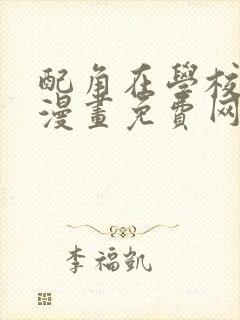 配角在學校
漫畫免費网
李福凱